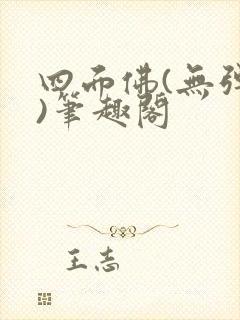 四面佛(無彈
)筆趣閣
王志